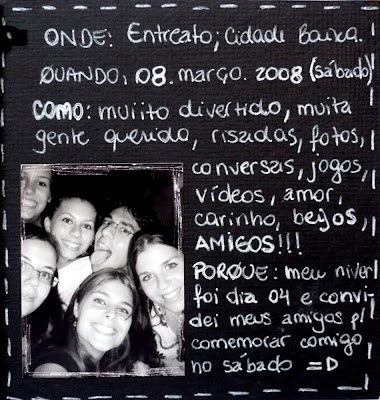 ONDE: Entreato; Cidade Baixa.
QUANDO: 08. março. 2008 (sábado)
COMO: muiito divertido, muita
gente querida, risadas, fotos,
conversas, jogos,
vídeos, amor,
carinho, bejos,
AMIGOS!!!
PORQUE: meu niver
foi dia 04 e convi-
dei meus amigos p/
comemorar comigo
no sábado =D